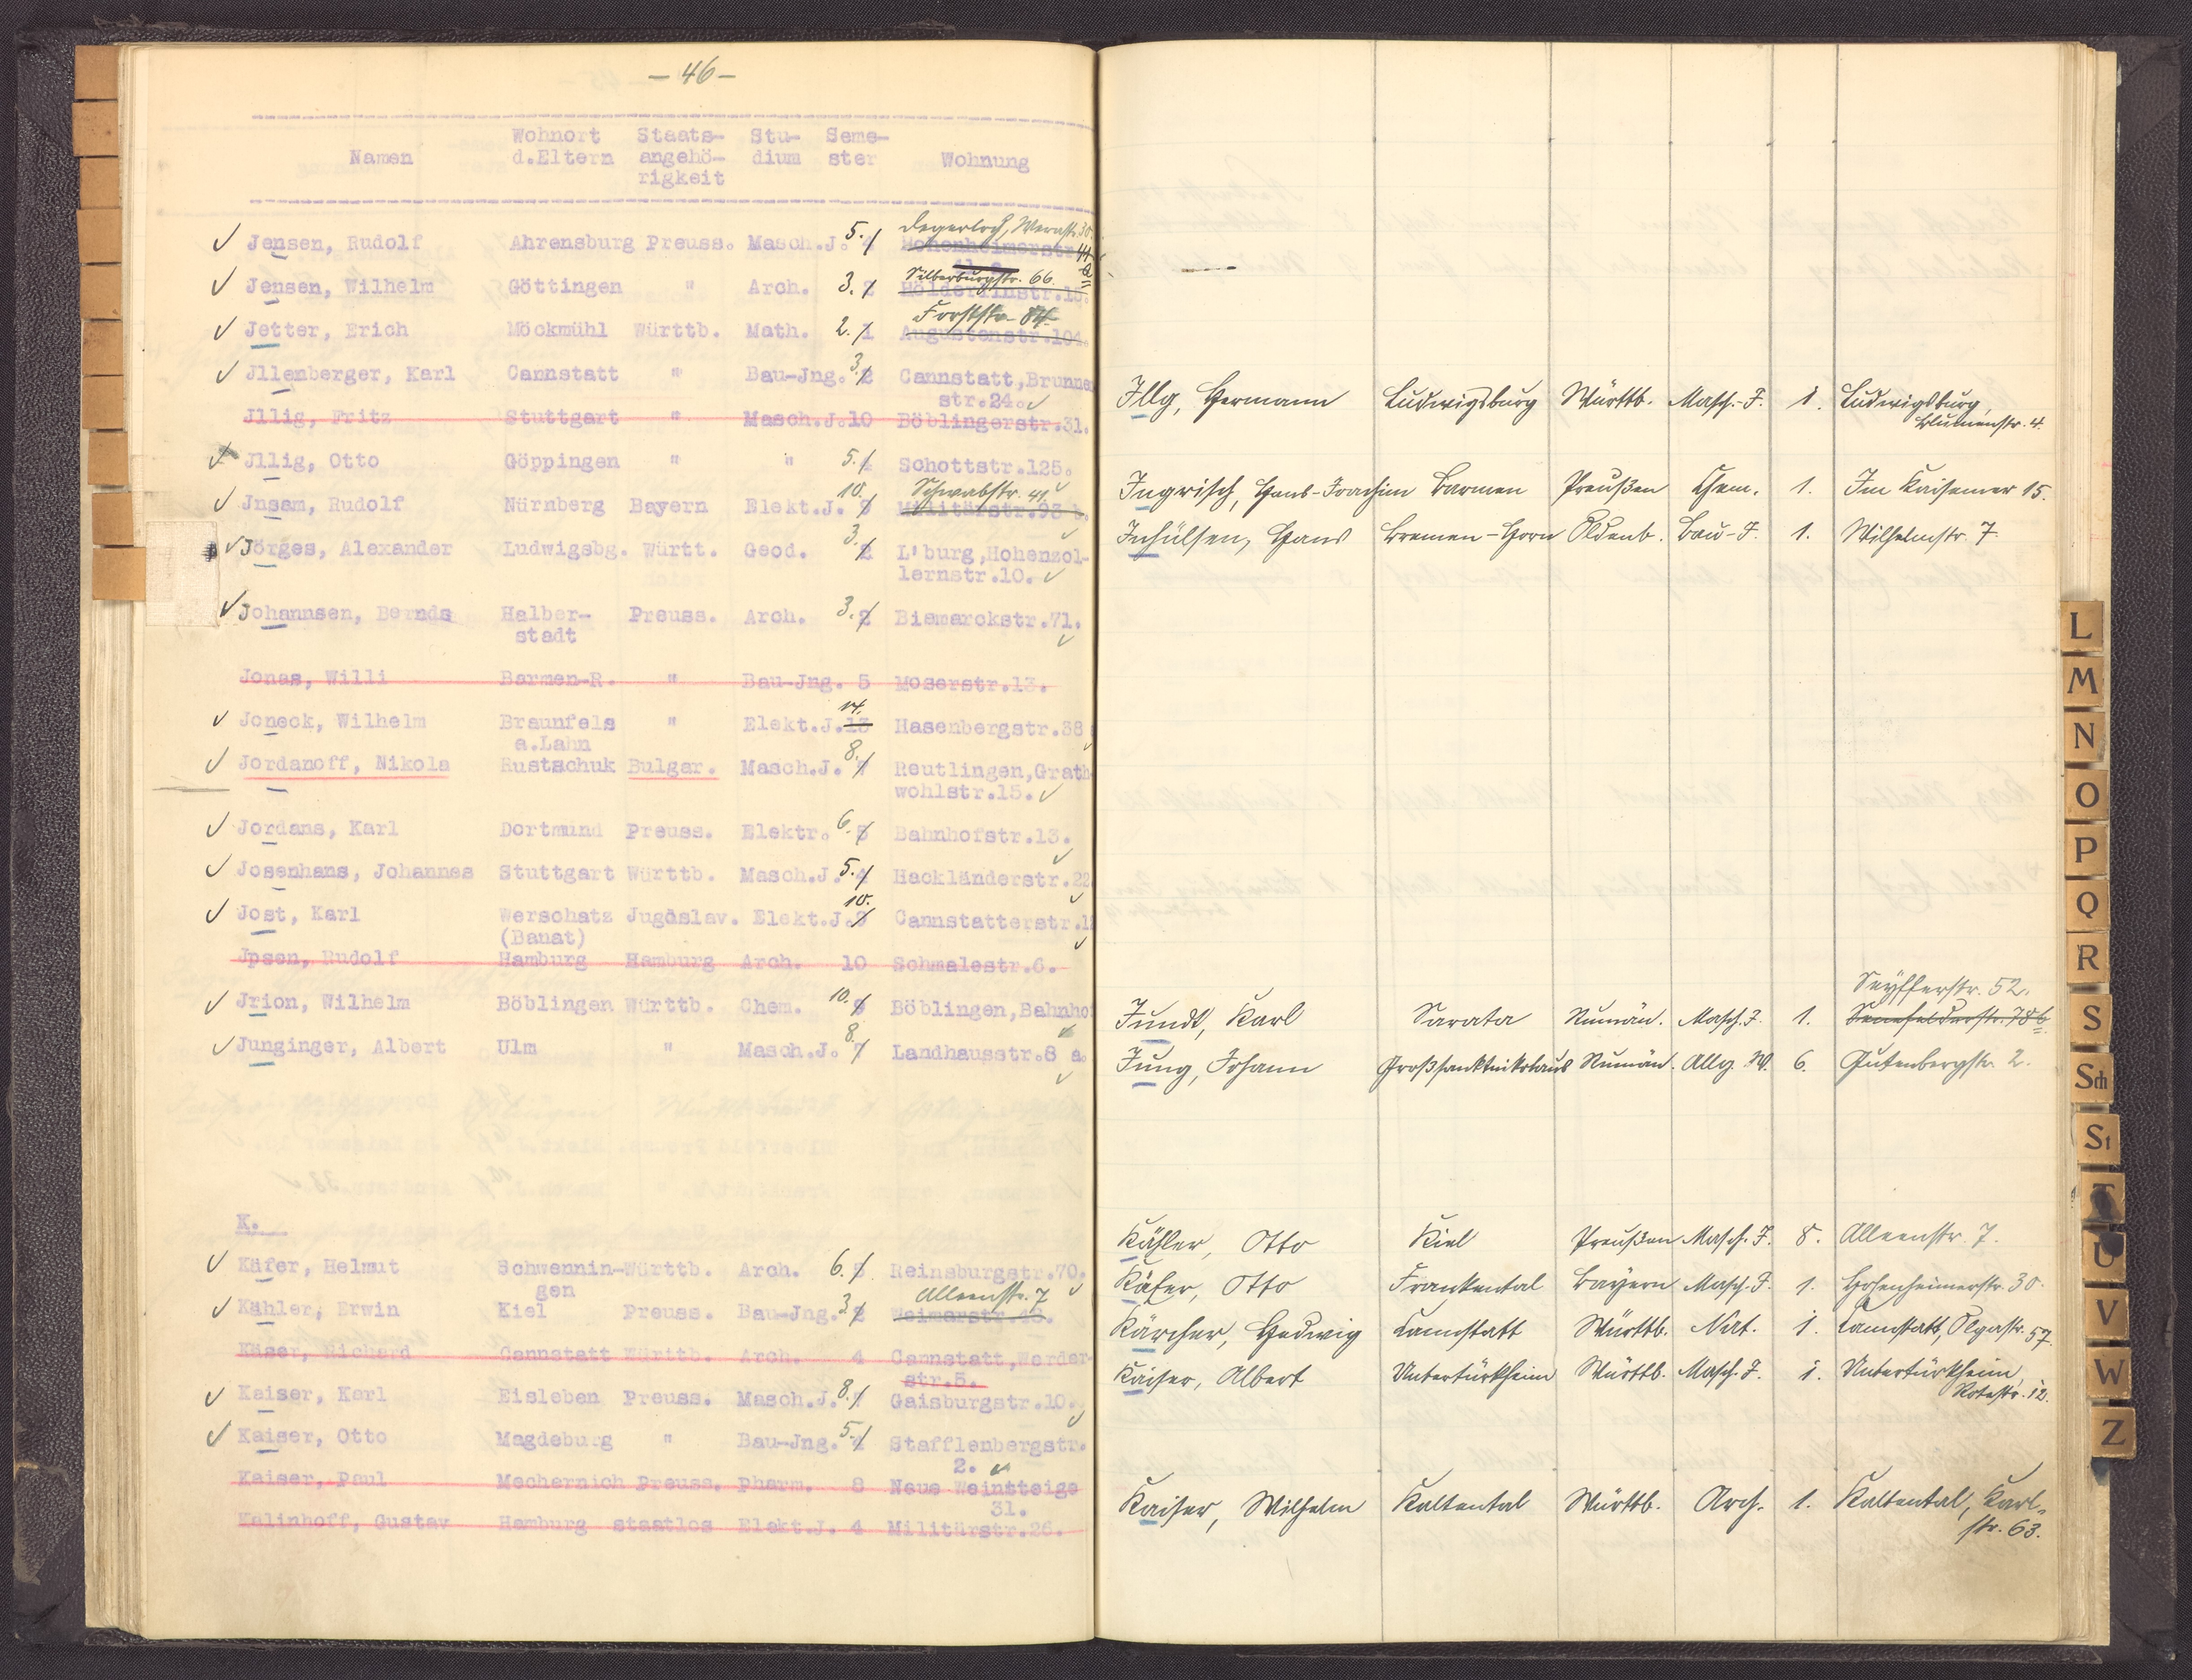 – 46 –
Namen Wohnort d.Eltern Staats-angehö-rigkeit Stu-dium Seme-ster Wohnung
Degerloch,
Jensen, Rudolf Ahrensburg Preuss. Masch.J. 5. 4 Hohenheimerstr. 44
Silberburgstr. 66.
Jensen, Wilhelm Göttingen " Arch. 3. 2 Hölderlinstr.15.
Forststr. 84.
Jetter, Erich Möckmühl Württb. Math. 2. 1 Augustenstr.104.
Jllenberger, Karl Cannstatt " Bau-Jng. 3. 2 Cannstatt,Brunnen
str.24.
Jllig, Fritz Stuttgart " Masch.J.10 Böblingerstr.31.
Jllig, Otto Göppingen " " 5. 4 Schottstr.125.
Schwabstr. 41.
Jnsam, Rudolf Nürnberg Bayern Elekt.J. 10. 9 Militärstr.93 b.
Jörges, Alexander Ludwigsbg. Württ. Geod. 3. 2 L'burg,Hohenzol-
lernstr.10.
Johannsen, Bernds Halber- Preuss. Arch. 3. 2 Bismarckstr.71.
stadt
Jonas, Willi Barmen-R. " Bau-Jng. 5 Moserstr.13.
Joneck, Wilhelm Braunfels " Elekt.J. 14. 13 Hasenbergstr.38
a.Lahn
Jordanoff, Nikola Rustschuk Bulgar. Masch.J. 8. 7 Reutlingen,Grath-
wohlstr.15.
Jordans, Karl Dortmund Preuss. Elektr. 6. 5 Bahnhofstr.13.
Josenhans, Johannes Stuttgart Württb. Masch.J. 5. 4 Hackländerstr.22
Jost, Karl Werschatz Jugoslav. Elekt.J. 10. 9 Cannstatterstr.12
(Banat)
Jpsen, Rudolf Hamburg Hamburg Arch. 10 Schmalestr.6.
Jrion, Wilhelm Böblingen Württb. Chem. 10. 9 Böblingen,Bahnhof
Junginger, Albert Ulm " Masch.J. 8. 7 Landhausstr.8 a.
K.
Käfer, Helmut Schwennin- Württb. Arch. 6. 5 Reinsburgstr.70.
gen Alleenstr. 7
Kähler, Erwin Kiel Preuss. Bau-Jng. 3. 2 Weimarstr.43.
Käser, Richard Cannstatt Württb. Arch. 4 Cannstatt,Werder-
str.5.
Kaiser, Karl Eisleben Preuss. Masch.J. 8. 7 Gaisburgstr.10.
Kaiser, Otto Magdeburg " Bau-Jng. 5. 4 Stafflenbergstr.
2.
Kaiser, Paul Mechernich Preuss. Pharm. 8 Neue Weinsteige
31.
Kalinhoff, Gustav Hamburg staatlos Elekt.J. 4 Militärstr.26.
Illg, Hermann Ludwigsburg Württb. Masch.-I. 1. Ludwigsburg,
Blumenstr. 4.
Ingrisch, Hans-Joachim Barmen Preußen Chem. 1. Im Kaisemer 15.
Inhülsen, Hans Bremen-Horn Oldenb. Bau-I. 1. Wilhelmstr. 7.
Seyfferstr. 52.
Jundt, Karl Sarata Rumän. Masch. I. 1. Senefelderstr. 78b.
Jung, Johann Großsanktnikolaus Rumän. Allg. W. 6. Gutenbergstr. 2.
Kähler, Otto Kiel Preußen Masch. I. 8. Alleenstr. 7.
Käfer, Otto Frankental Bayern Masch. I. 1. Hohenheimerstr. 30.
Kärcher, Hedwig Cannstatt Württb. Nat. 1. Cannstatt, Olgastr. 57.
Kaiser, Albert Untertürkheim Württb. Masch. I. 1. Untertürkheim,
Rotestr. 12.
Kaiser, Wilhelm Kaltental Württb. Arch. 1. Kaltental, Karl-
str. 63.
L
M
N
O
P
Q
R
S
Sch
St
T
U
V
W
Z